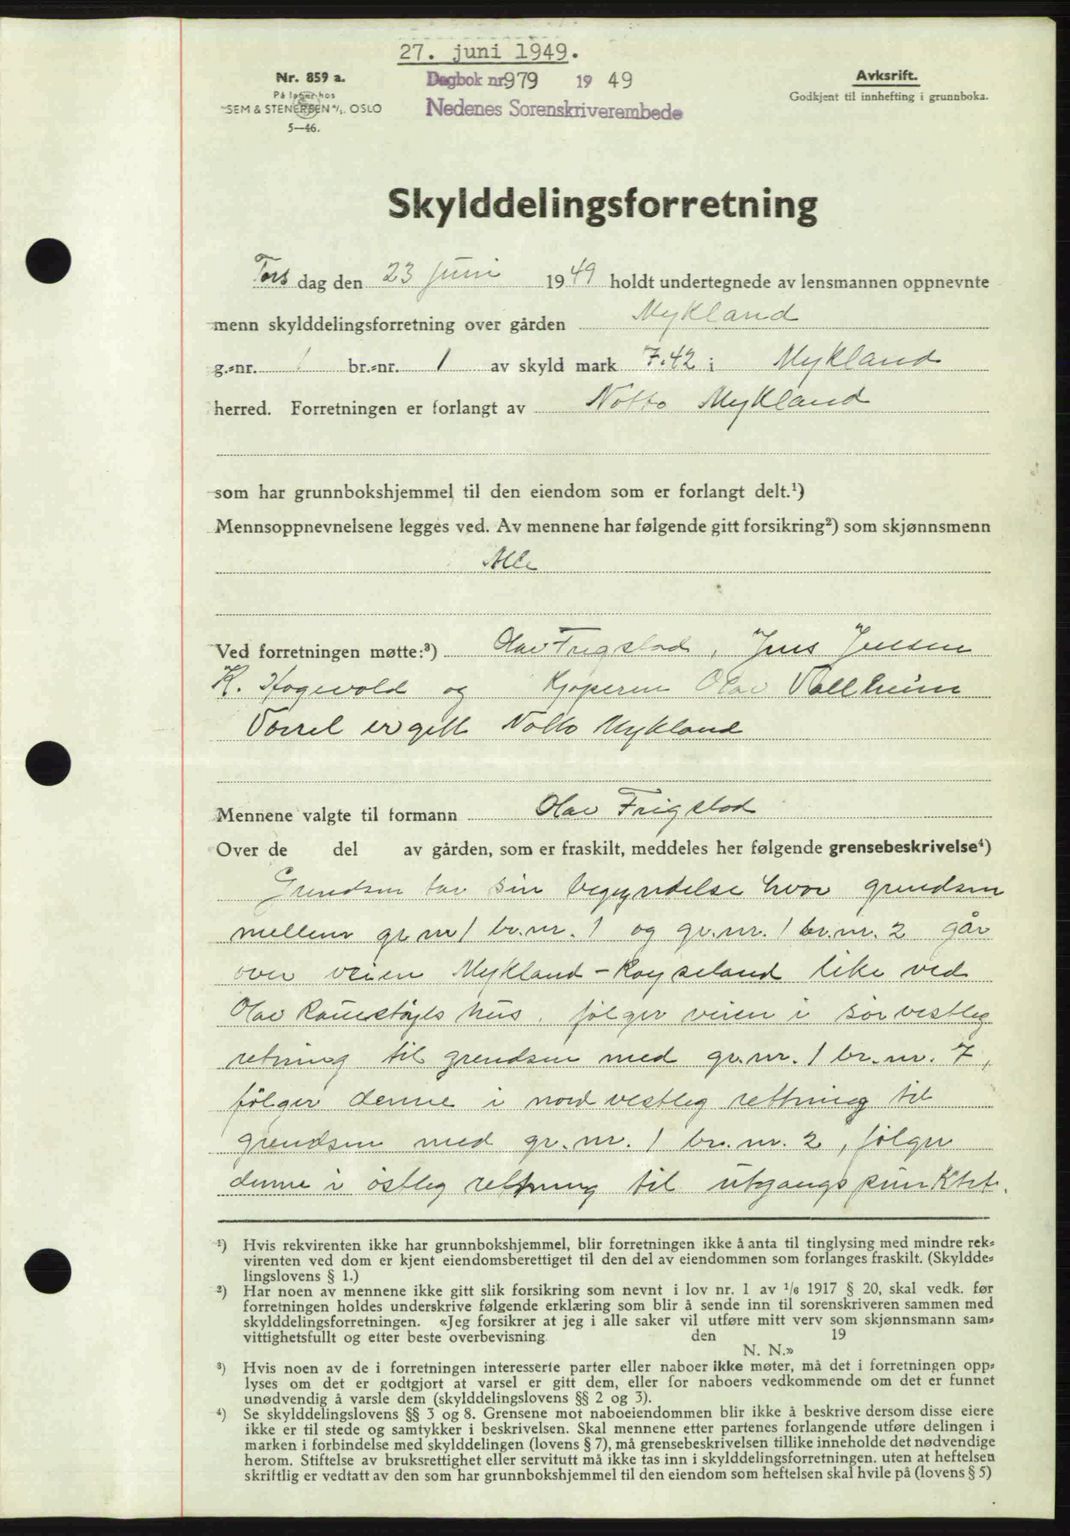 27. juni 1949.
Nr. 859 a.
På lager hos
SEM & STENERSEN A/S. OSLO
5—46.
Dagbok nr 979 1949
Nedenes Sorenskriverembede
Avskrift.
Godkjent til innhefting i grunnboka.
Skylddelingsforretning
Tors dag den 23 juni 1949 holdt undertegnede av lensmannen oppnevnte
menn skylddelingsforretning over gården Mykland
g.-nr. 1 br.-nr. 1 av skyld mark 7.42 i Mykland
herred. Forretningen er forlangt av Notto Mykland
som har grunnbokshjemmel til den eiendom som er forlangt delt.¹)
Mennsoppnevnelsene legges ved. Av mennene har følgende gitt forsikring²) som skjønnsmenn
Alle
Ved forretningen møtte:³) Olav Frigstad, Jens Jensen
K. Hogevold og kjøperen Olav Vallheim
Varsel er gitt Notto Mykland
Mennene valgte til formann Olav Frigstad
Over de del av gården, som er fraskilt, meddeles her følgende grensebeskrivelse⁴)
Grendsen tar sin begyndelse hvor grendsen
mellem gr.nr 1 br.nr. 1 og gr.nr. 1 br.nr. 2 går
over veien Mykland - Røyseland like ved
Olav hus, følger veien i sør vestleg
retning til grendsen med gr.nr. 1 br.nr. 7,
følger denne i nord vestleg rettning til
grendsen med gr.nr. 1 br.nr. 2, følger
denne i östleg rettning til utgangspunktet.
¹) Hvis rekvirenten ikke har grunnbokshjemmel, blir forretningen ikke å anta til tinglysing med mindre rek-
virenten ved dom er kjent eiendomsberettiget til den del av eiendommen som forlanges fraskilt. (Skyldde-
lingslovens § 1.)
²) Har noen av mennene ikke gitt slik forsikring som nevnt i lov nr. 1 av 1/6 1917 § 20, skal vedk. før
forretningen holdes underskrive følgende erklæring som blir å sende inn til sorenskriveren sammen med
skylddelingsforretningen. «Jeg forsikrer at jeg i alle saker vil utføre mitt verv som skjønnsmann sam-
vittighetsfullt og etter beste overbevisning den 19
N. N.»
³) Hvis noen av de i forretningen interesserte parter eller naboer ikke møter, må det i forretningen opp-
lyses om det er godtgjort at varsel er gitt dem, eller for naboers vedkommende om det er funnet
unødvendig å varsle dem (skylddelingslovens §§ 2 og 3).
⁴) Se skylddelingslovens §§ 3 og 8. Grensene mot naboeiendommen blir ikke å beskrive dersom disse eiere
ikke er til stede og samtykker i beskrivelsen. Skal mennene etter partenes forlangende utføre delingen i
marken i forbindelse med skylddelingen (lovens § 7), må grensebeskrivelsen tillike inneholde det nødvendige
herom. Stiftelse av bruksrettighet eller servitutt må ikke tas inn i skylddelingsforretningen. uten at heftelsen
skriftlig er vedtatt av den som har grunnbokshjemmel til den eiendom som heftelsen skal hvile på (lovens § 5)